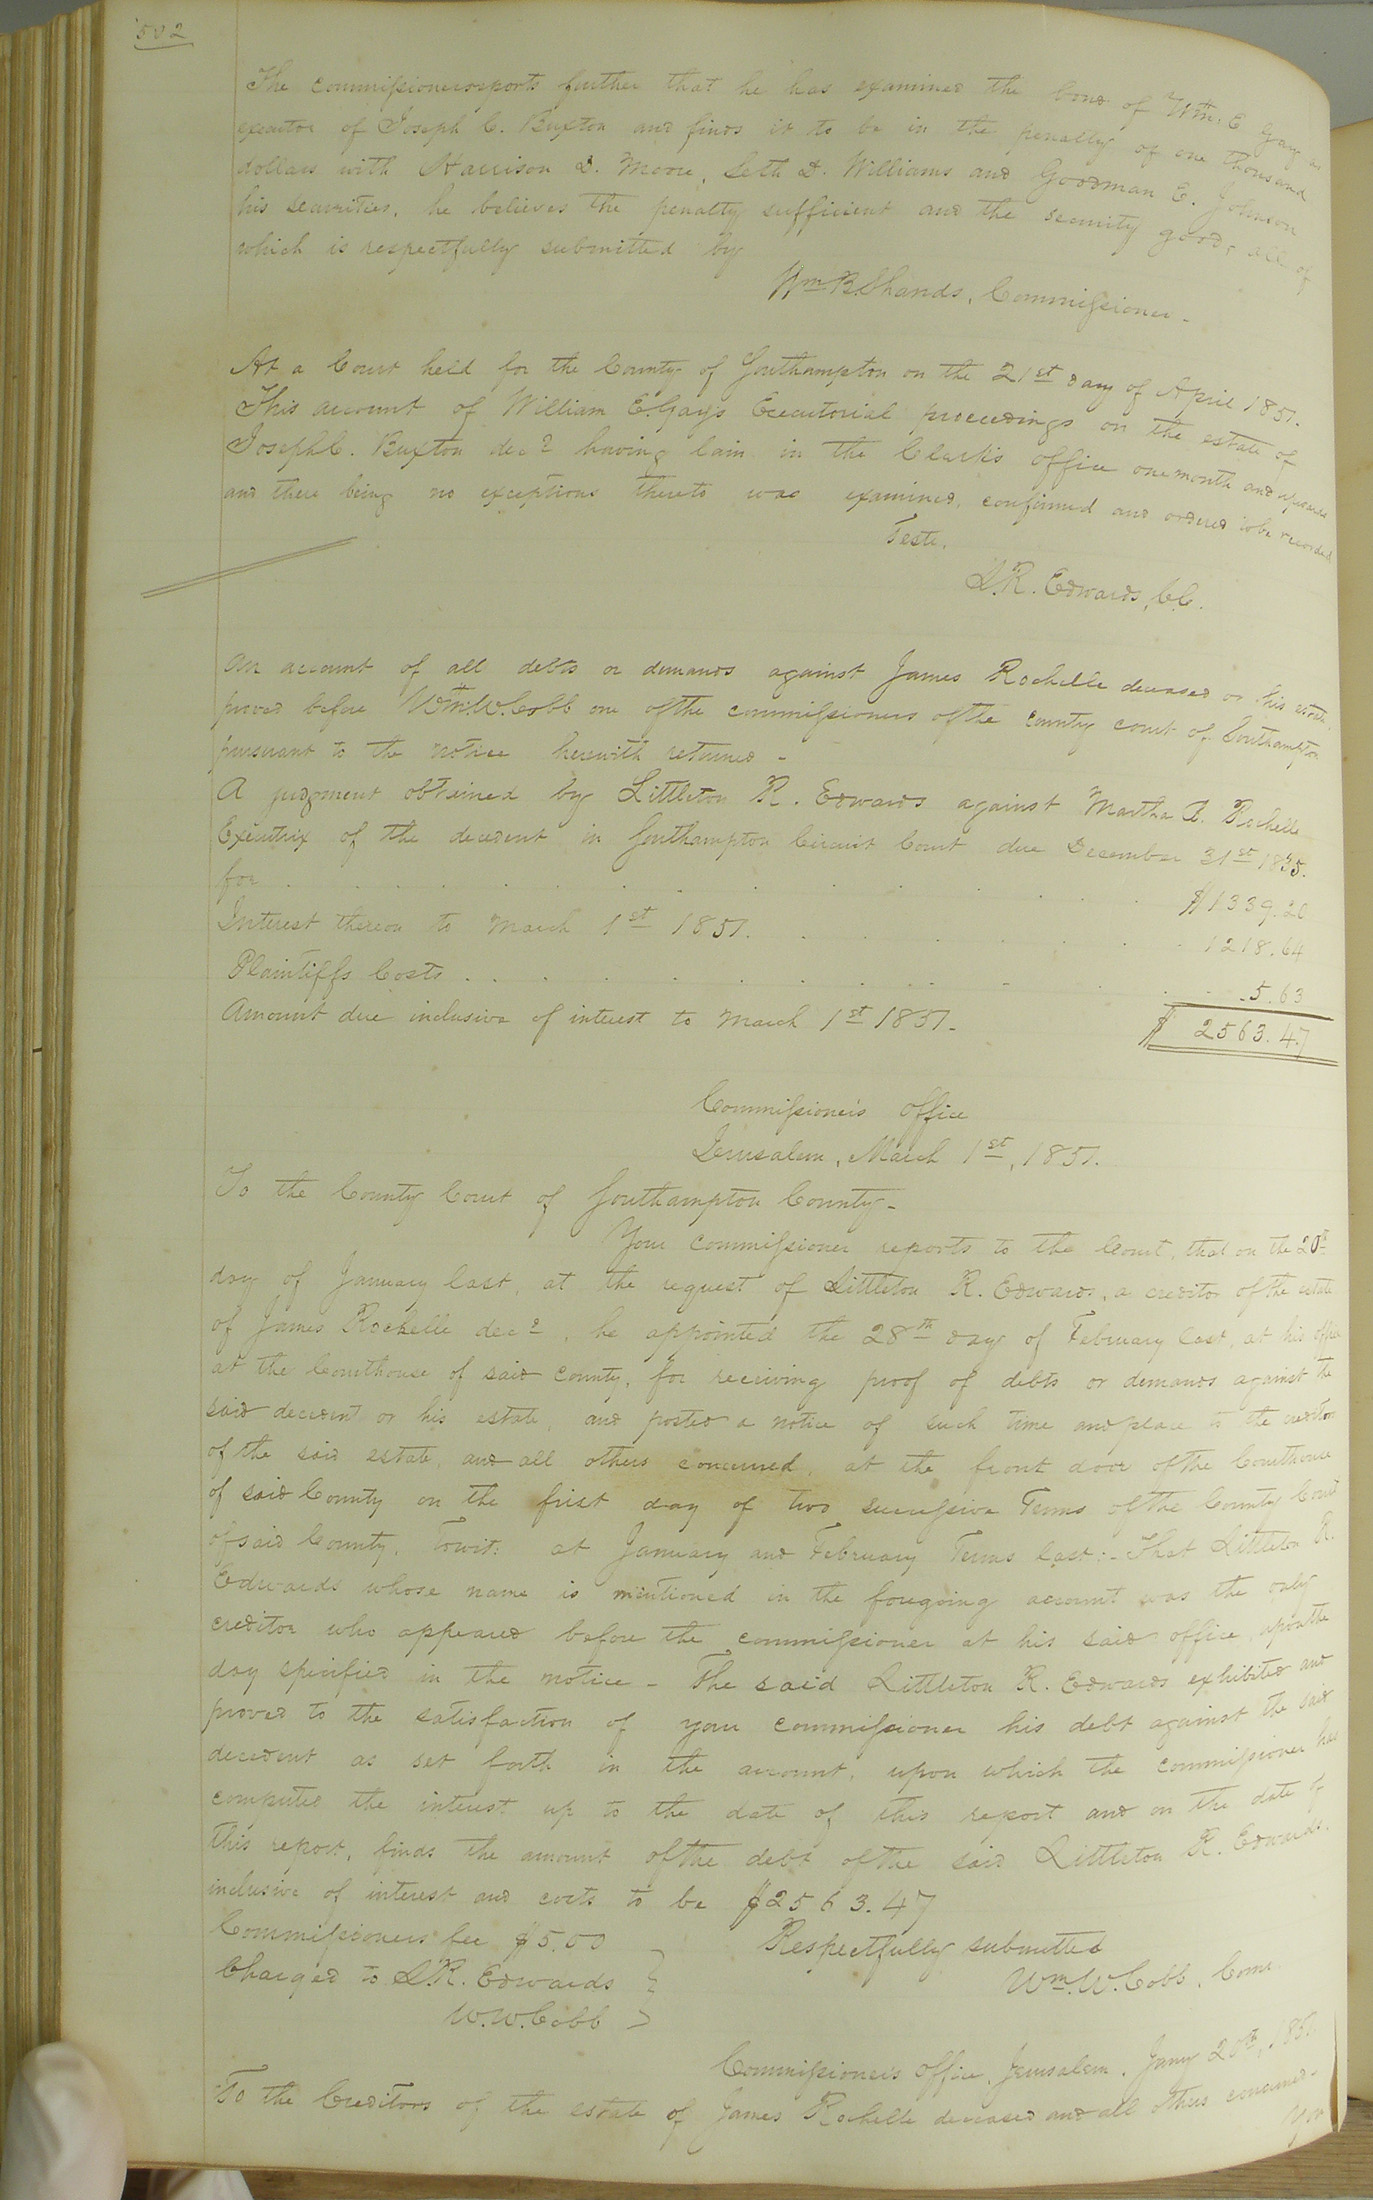 502
The commissioner reports further that he has examined the bond of Wm. E Gay as
executor of Joseph C. Buxton and finds it to be in the penalty of one thousand
dollars with Harrison D. Moore, Seth D. Williams and Goodman E. Johnson
his securities, he believes the penalty sufficient and the security good, all of
which is respectfully submitted by
Wm B. Shands, Commissioner -
At a Court held for the County of Southampton on the 21st day of April 1851.
This account of William E. Gay's Executorial proceedings on the estate of
Joseph C. Buxton decd having lain in the Clerk's office one month and upwards
and there being no exceptions thereto was examined, confirmed and ordered to be recorded
Teste,
L.R. Edwards, C.C.
An account of all debts or demands against James Rochelle deceased or his estate
proved before Wm. W. Cobb one of the commissioners of the county court of Southampton
pursuant to the notice herewith returned -
A judgment obtained by Littleton R. Edwards against Martha B. Rochelle
Executrix of the decedent in Southampton Circuit Court due December 31st 1835.
for . . . . . . . . $1339.20
Interest thereon to March 1st 1851. . . . . . 1218.64
Plaintiffs Costs . . . . . . . . 5.63
Amount due inclusive of interest to March 1st 1851. $2563.47
Commissioner's office
Jerusalem, March 1st, 1851.
To the County Court of Southampton County -
Your commissioner reports to the Court, that on the 20th
day of January last, at the request of Littleton R. Edwards, a creditor of the estate
of James Rochelle decd, he appointed the 28th day of February last, at his office
at the Courthouse of said county, for receiving proof of debts or demands against the
said decedent or his estate, and posted a notice of such time and place to the creditors
of the said estate, and all others concerned, at the front door of the Courthouse
of said County on the first day of two successive Terms of the County Court
of said County, Towit: at January and February Terms last: - That Littleton R.
Edwards whose name is mentioned in the foregoing account was the only
creditor who appeared before the commissioner at his said office, upon the
day specified in the notice - The said Littleton R. Edwards exhibited and
proved to the satisfaction of your commissioner his debt against the said
decedent as set forth in the account, upon which the commissioner has
computed the interest up to the date of this report and on the date of
this report, finds the amount of the debt of the said Littleton R. Edwards.
inclusive of interest and costs to be $2563.47
Commissioners fee $5.00
Respectfully submitted
Charged to L.R. Edwards
Wm. W. Cobb, Comr
W.W. Cobb
Commissioner's office, Jerusalem, Jany 20th, 1851
To the Creditors of the estate of James Rochelle deceased and all others concerned -
You